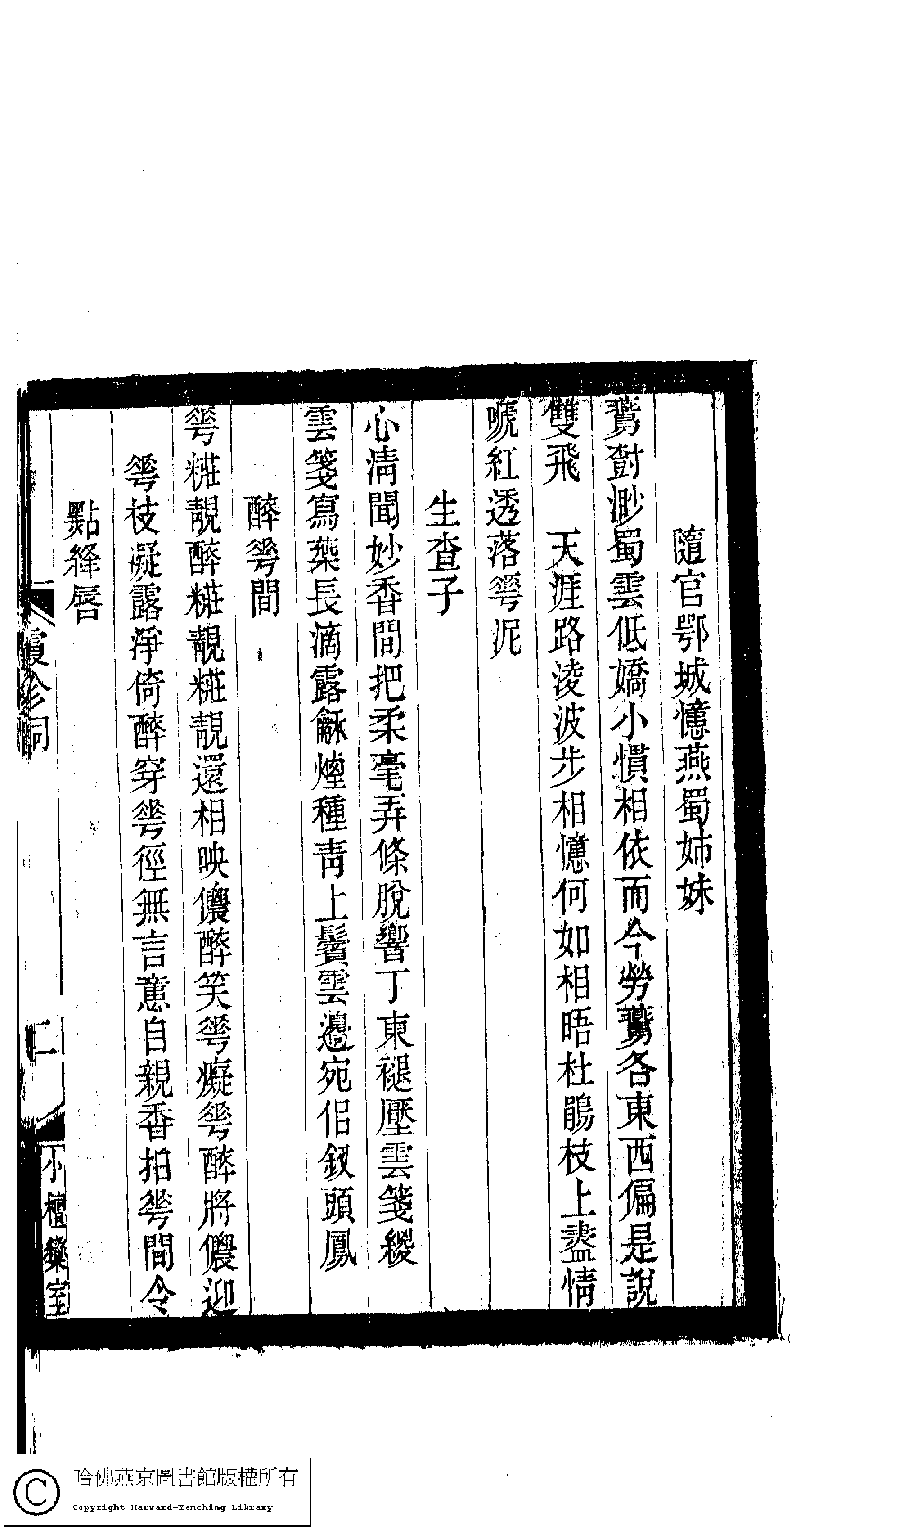 隨官鄂城憶燕蜀姊妹
鴛對渺蜀雲低嬌小慣相依而今勞鴛各東西偏是說
雙飛　天涯路淩波步相憶何如相晤杜鵑枝上盡情
嗁紅透落蕚泥
生查子
心淸聞妙香閒把柔毫弄條脫響丁東褪壓雲箋縐
雲箋寫葉長滴露龢煙種靑上鬢雲邊宛佀釵頭鳳
醉蕚間
蕚糚靚醉糚靚糚靚還相映儂醉笑蕚癡蕚醉將儂迎
蕚枝凝露淨倚醉穿蕚徑無言意自親香拍蕚間令
點絳唇
霞珍詞
二
小檀欒室
哈佛燕京圖書館版權所有
Copyright Harvard-Yenching Library